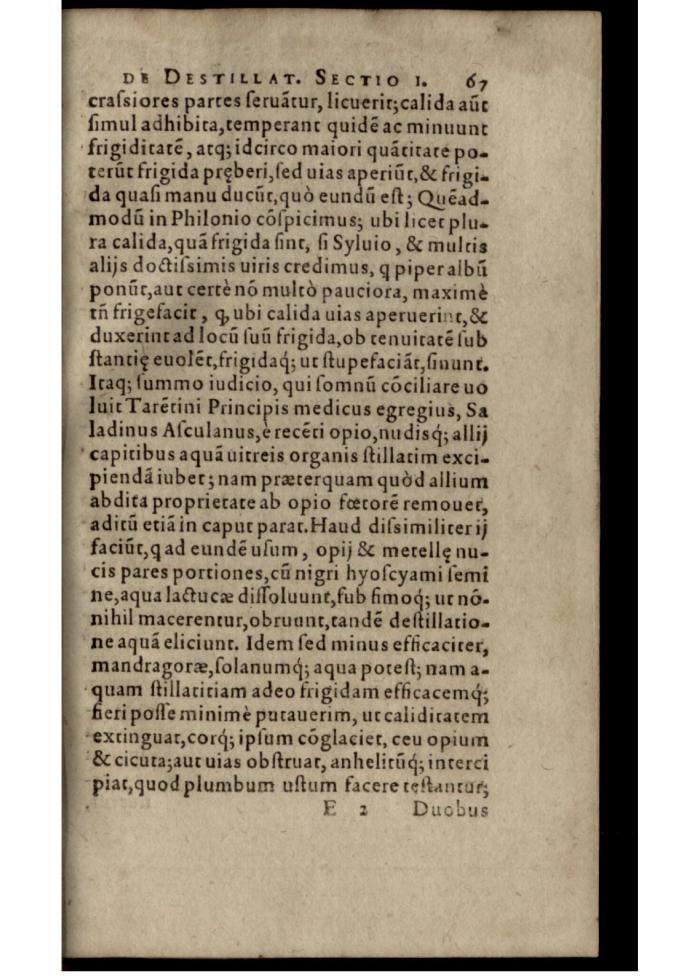 DE DESTILLAT. SECTIO I. 67
craſsiores partes ſeruãtur, licuerit; calida aũt
ſimul adhibita, temperant quidẽ ac minuunt
frigiditatẽ, atq; idcirco maiori quãtitate po-
terũt frigida pręberi, ſed uias aperiũt, & frigi-
da quaſi manu ducũt, quò eundũ eſt; Quẽad-
modũ in Philonio cõſpicimus; ubi licet plu-
ra calida, quã frigida ſint, ſi Syluio, & multis
alijs doctiſsimis uiris credimus, q piper albũ
ponũt, aut certè nõ multò pauciora, maximè
tñ frigefacit, q, ubi calida uias aperuerint, &
duxerint ad locũ ſuũ frigida, ob tenuitatẽ ſub
ſtantię euolẽt, frigidaq́; ut ſtupefaciãt, ſinunt.
Itaq; ſummo iudicio, qui ſomnũ cõciliare uo
luit Tarẽtini Principis medicus egregius, Sa
ladinus Aſculanus, è recẽti opio, nudisq́; allij
capitibus aquã uitreis organis ſtillatim exci-
piendã iubet; nam præterquam quòd allium
abdita proprietate ab opio fœtorẽ remouet,
aditũ etiã in caput parat. Haud diſsimiliter ij
faciũt, q ad eundẽ uſum, opij & metellę nu-
cis pares portiones, cũ nigri hyoſcyami ſemi
ne, aqua lactucæ diſſoluunt, ſub fimoq́; ut nõ-
nihil macerentur, obruunt, tandẽ deſtillatio-
ne aquã eliciunt. Idem ſed minus efficaciter,
mandragoræ, ſolanumq́; aqua poteſt; nam a-
quam ſtillatitiam adeo frigidam efficacemq́;
fieri poſſe minimè putauerim, ut caliditatem
extinguat, corq́; ipſum cõglaciet, ceu opium
& cicuta; aut uias obſtruat, anhelitũq́; interci
piat, quod plumbum uſtum facere teſtantur;
E 2 Duobus